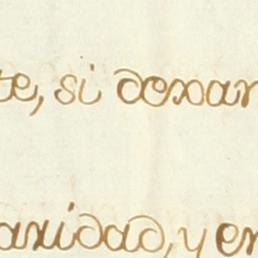 te, si dexar
axidad, y en